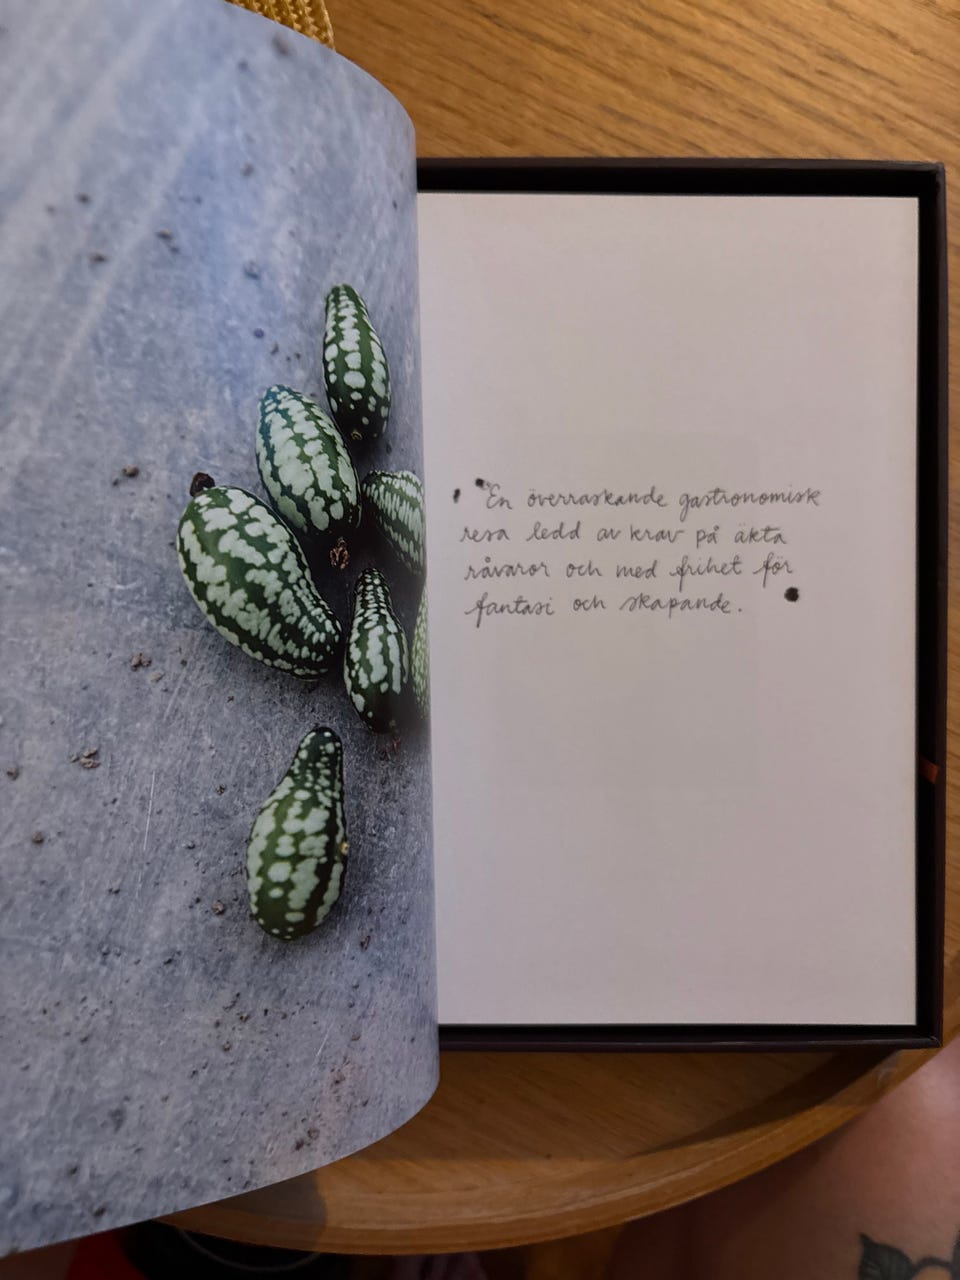 En överraskande gastronomisk
resa ledd av krav på äkta
råvaror och med frihet för
fantasi och skapande.